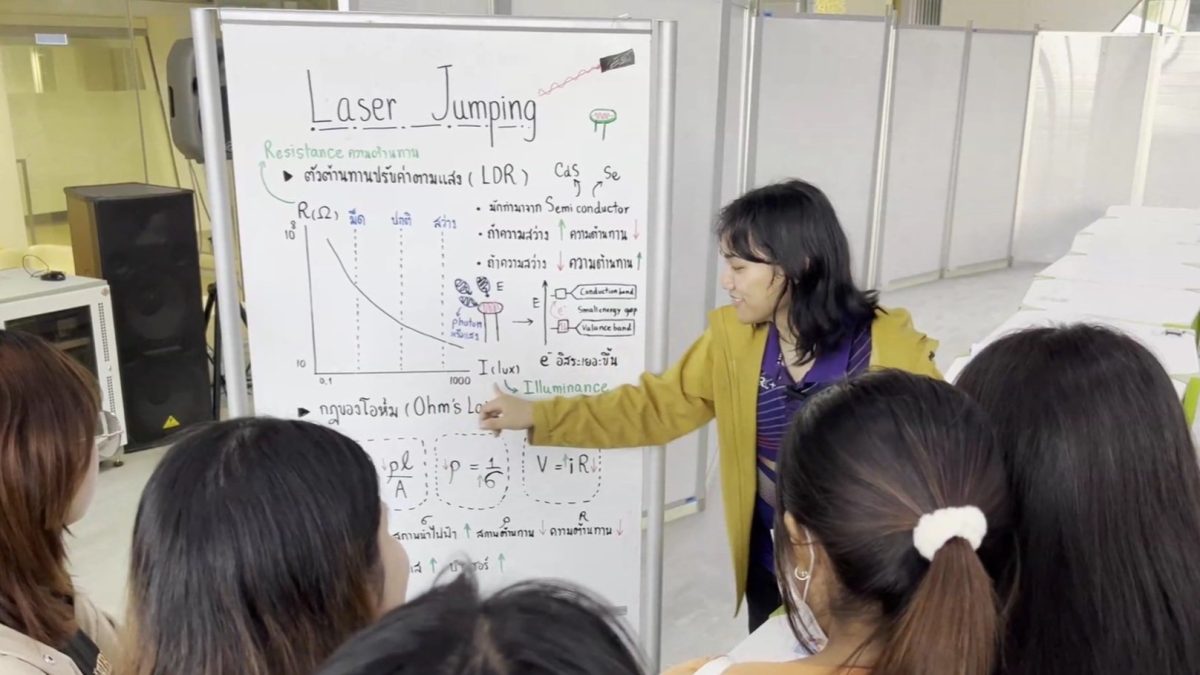 Laser Jumping
Resistance ความต้านทาน
▶ ตัวต้านทานปรับค่าตามแสง (LDR)
CdS Se
R(Ω) มืด ปกติ สว่าง
10⁸
10
0.1 1000 I(lux)
Illuminance
• มักทำมาจาก Semi conductor
• ถ้าความสว่าง ↑ ความต้านทาน ↓
• ถ้าความสว่าง ↓ ความต้านทาน ↑
E
photon
E
e⁻
Conduction band
Small energy gap
Valance band
e⁻ อิสระเยอะขึ้น
▶ กฎของโอห์ม (Ohm's
↓ρl/A
↓ρ = 1/σ↑
V = ↑iR↓
σ ρ R
สภาพนำไฟฟ้า ↑ สภาพต้านทาน ↓ ความต้านทาน ↓